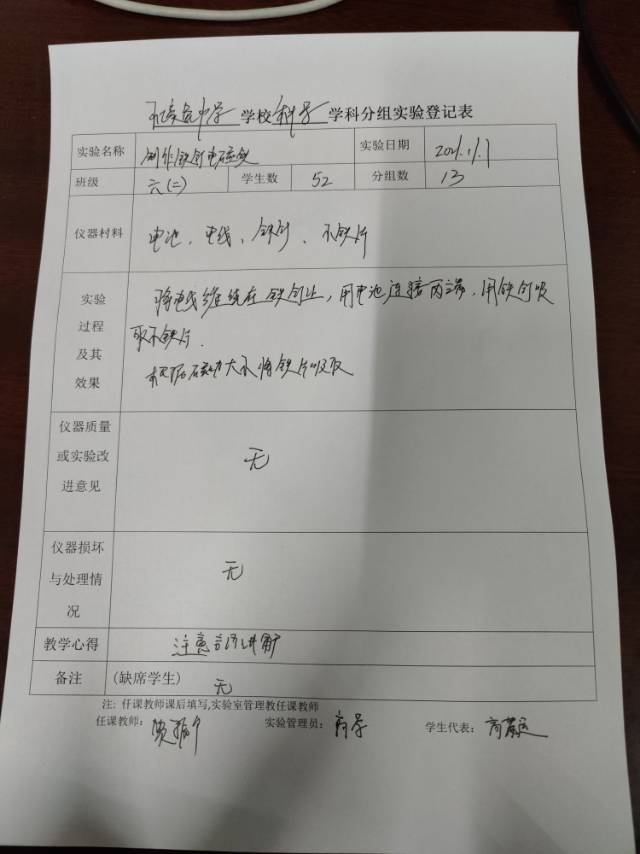 中学 学校 科学 学科分组实验登记表
实验名称 制作铁钉电磁铁 实验日期 2021.11.1
班级 六(二) 学生数 52 分组数 13
仪器材料 电池、电线、铁钉、小铁片
实验过程及其效果 将电线缠绕在铁钉上,用电池连接两端,用铁钉吸
取小铁片.
根据磁力大小将铁片吸取
仪器质量
或实验改 无
进意见
仪器损坏
与处理情 无
况
教学心得 注意
备注 (缺席学生) 无
注: 任课教师课后填写,实验室管理教任课教师
任课教师: 实验管理员: 学生代表: